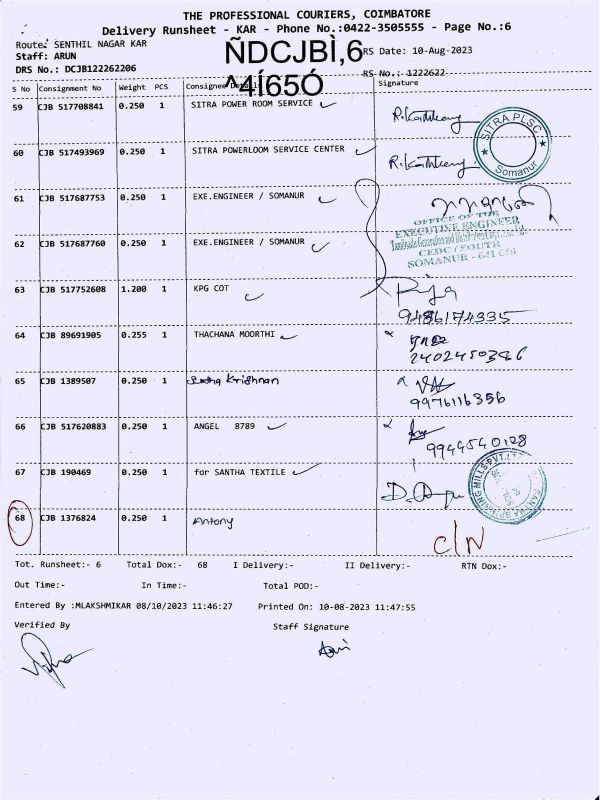 THE PROFESSIONAL COURIERS, COIMBATORE
Delivery Runsheet - KAR - Phone No.:0422-3505555 - Page No.:6
Route: SENTHIL NAGAR KAR
ÑDCJBÌ,6
RS Date: 10-Aug-2023
Staff: ARUN
^4Í65Ó
DRS No.: DCJB122262206
RS No.: 1222622
S No Consignment No Weight PCS Consignee Details Signature
59 CJB 517708841 0.250 1 SITRA POWER ROOM SERVICE
SITRA PLSC
Somanur
60 CJB 517493969 0.250 1 SITRA POWERLOOM SERVICE CENTER
61 CJB 517687753 0.250 1 EXE.ENGINEER / SOMANUR
OFFICE OF THE
EXECUTIVE ENGINEER
CEDC / SOUTH
SOMANUR - 641 668
62 CJB 517687760 0.250 1 EXE.ENGINEER / SOMANUR
63 CJB 517752608 1.200 1 KPG COT
9486174335
64 CJB 89691905 0.255 1 THACHANA MOORTHI
65 CJB 1389507 0.250 1 Krishnan
9976116356
66 CJB 517620883 0.250 1 ANGEL 8789
9944540128
67 CJB 190469 0.250 1 for SANTHA TEXTILE
68 CJB 1376824 0.250 1 Antony
C/N
Tot. Runsheet:- 6 Total Dox:- 68 I Delivery:- II Delivery:- RTN Dox:-
Out Time:- In Time:- Total POD:-
Entered By :MLAKSHMIKAR 08/10/2023 11:46:27 Printed On: 10-08-2023 11:47:55
Verified By Staff Signature